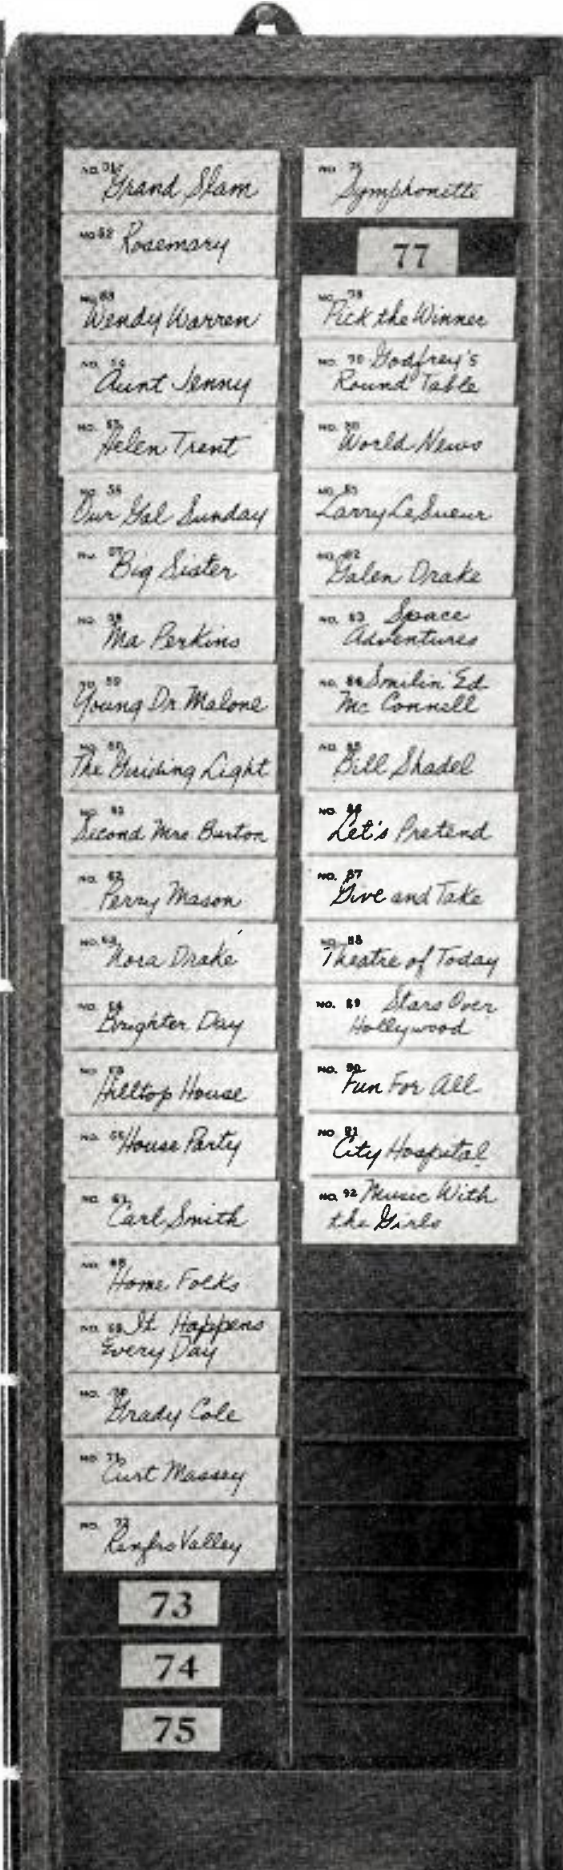 Grand Slam
NO 52 Rosemary
Wendy Warren
Aunt Jenny
NO. Helen Trent
Our Gal Sunday
Big Sister
Ma Perkins
NO. 59
Young Dr. Malone
The Guiding Light
Second Mrs. Burton
NO. 62
Perry Mason
NO. 63
Nora Drake
Brighter Day
Hilltop House
NO. House Party
NO. 67
Carl Smith
NO.
Home Folks
NO. It Happens
Every Day
NO. 70
Grady Cole
NO. 71
Curt Massey
NO. 72
Renfro Valley
73
74
75
NO.
Symphonette
77
Pick the Winner
NO. 79 Godfrey's
Round Table
NO. 80
World News
Larry LeSueur
NO. 82
Galen Drake
NO. 83 Space
Adventures
NO. 84 Smilin' Ed
Mc Connell
NO. 85
Bill Shadel
NO. 86
Let's Pretend
NO. 87
Give and Take
NO. 88
Theatre of Today
NO. 89 Stars Over
Hollywood
NO. 90
Fun For All
NO. 91
City Hospital
NO. 92 Music With
the Girls